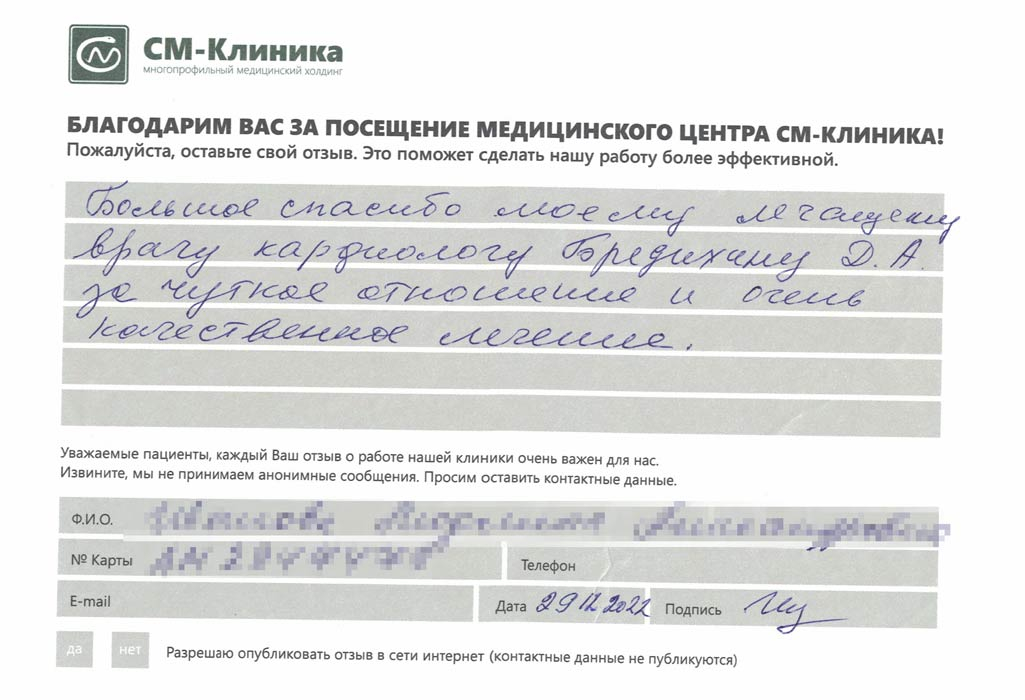 СМ-Клиника
многопрофильный медицинский холдинг
БЛАГОДАРИМ ВАС ЗА ПОСЕЩЕНИЕ МЕДИЦИНСКОГО ЦЕНТРА СМ-КЛИНИКА!
Пожалуйста, оставьте свой отзыв. Это поможет сделать нашу работу более эффективной.
Большое спасибо моему лечащему
врачу кардиологу Бредихину Д.А.
за чуткое отношение и очень
качественное лечение.
Уважаемые пациенты, каждый Ваш отзыв о работе нашей клиники очень важен для нас.
Извините, мы не принимаем анонимные сообщения. Просим оставить контактные данные.
Ф.И.О.
№ Карты Телефон
E-mail Дата 29.12.2022 Подпись
да нет Разрешаю опубликовать отзыв в сети интернет (контактные данные не публикуются)